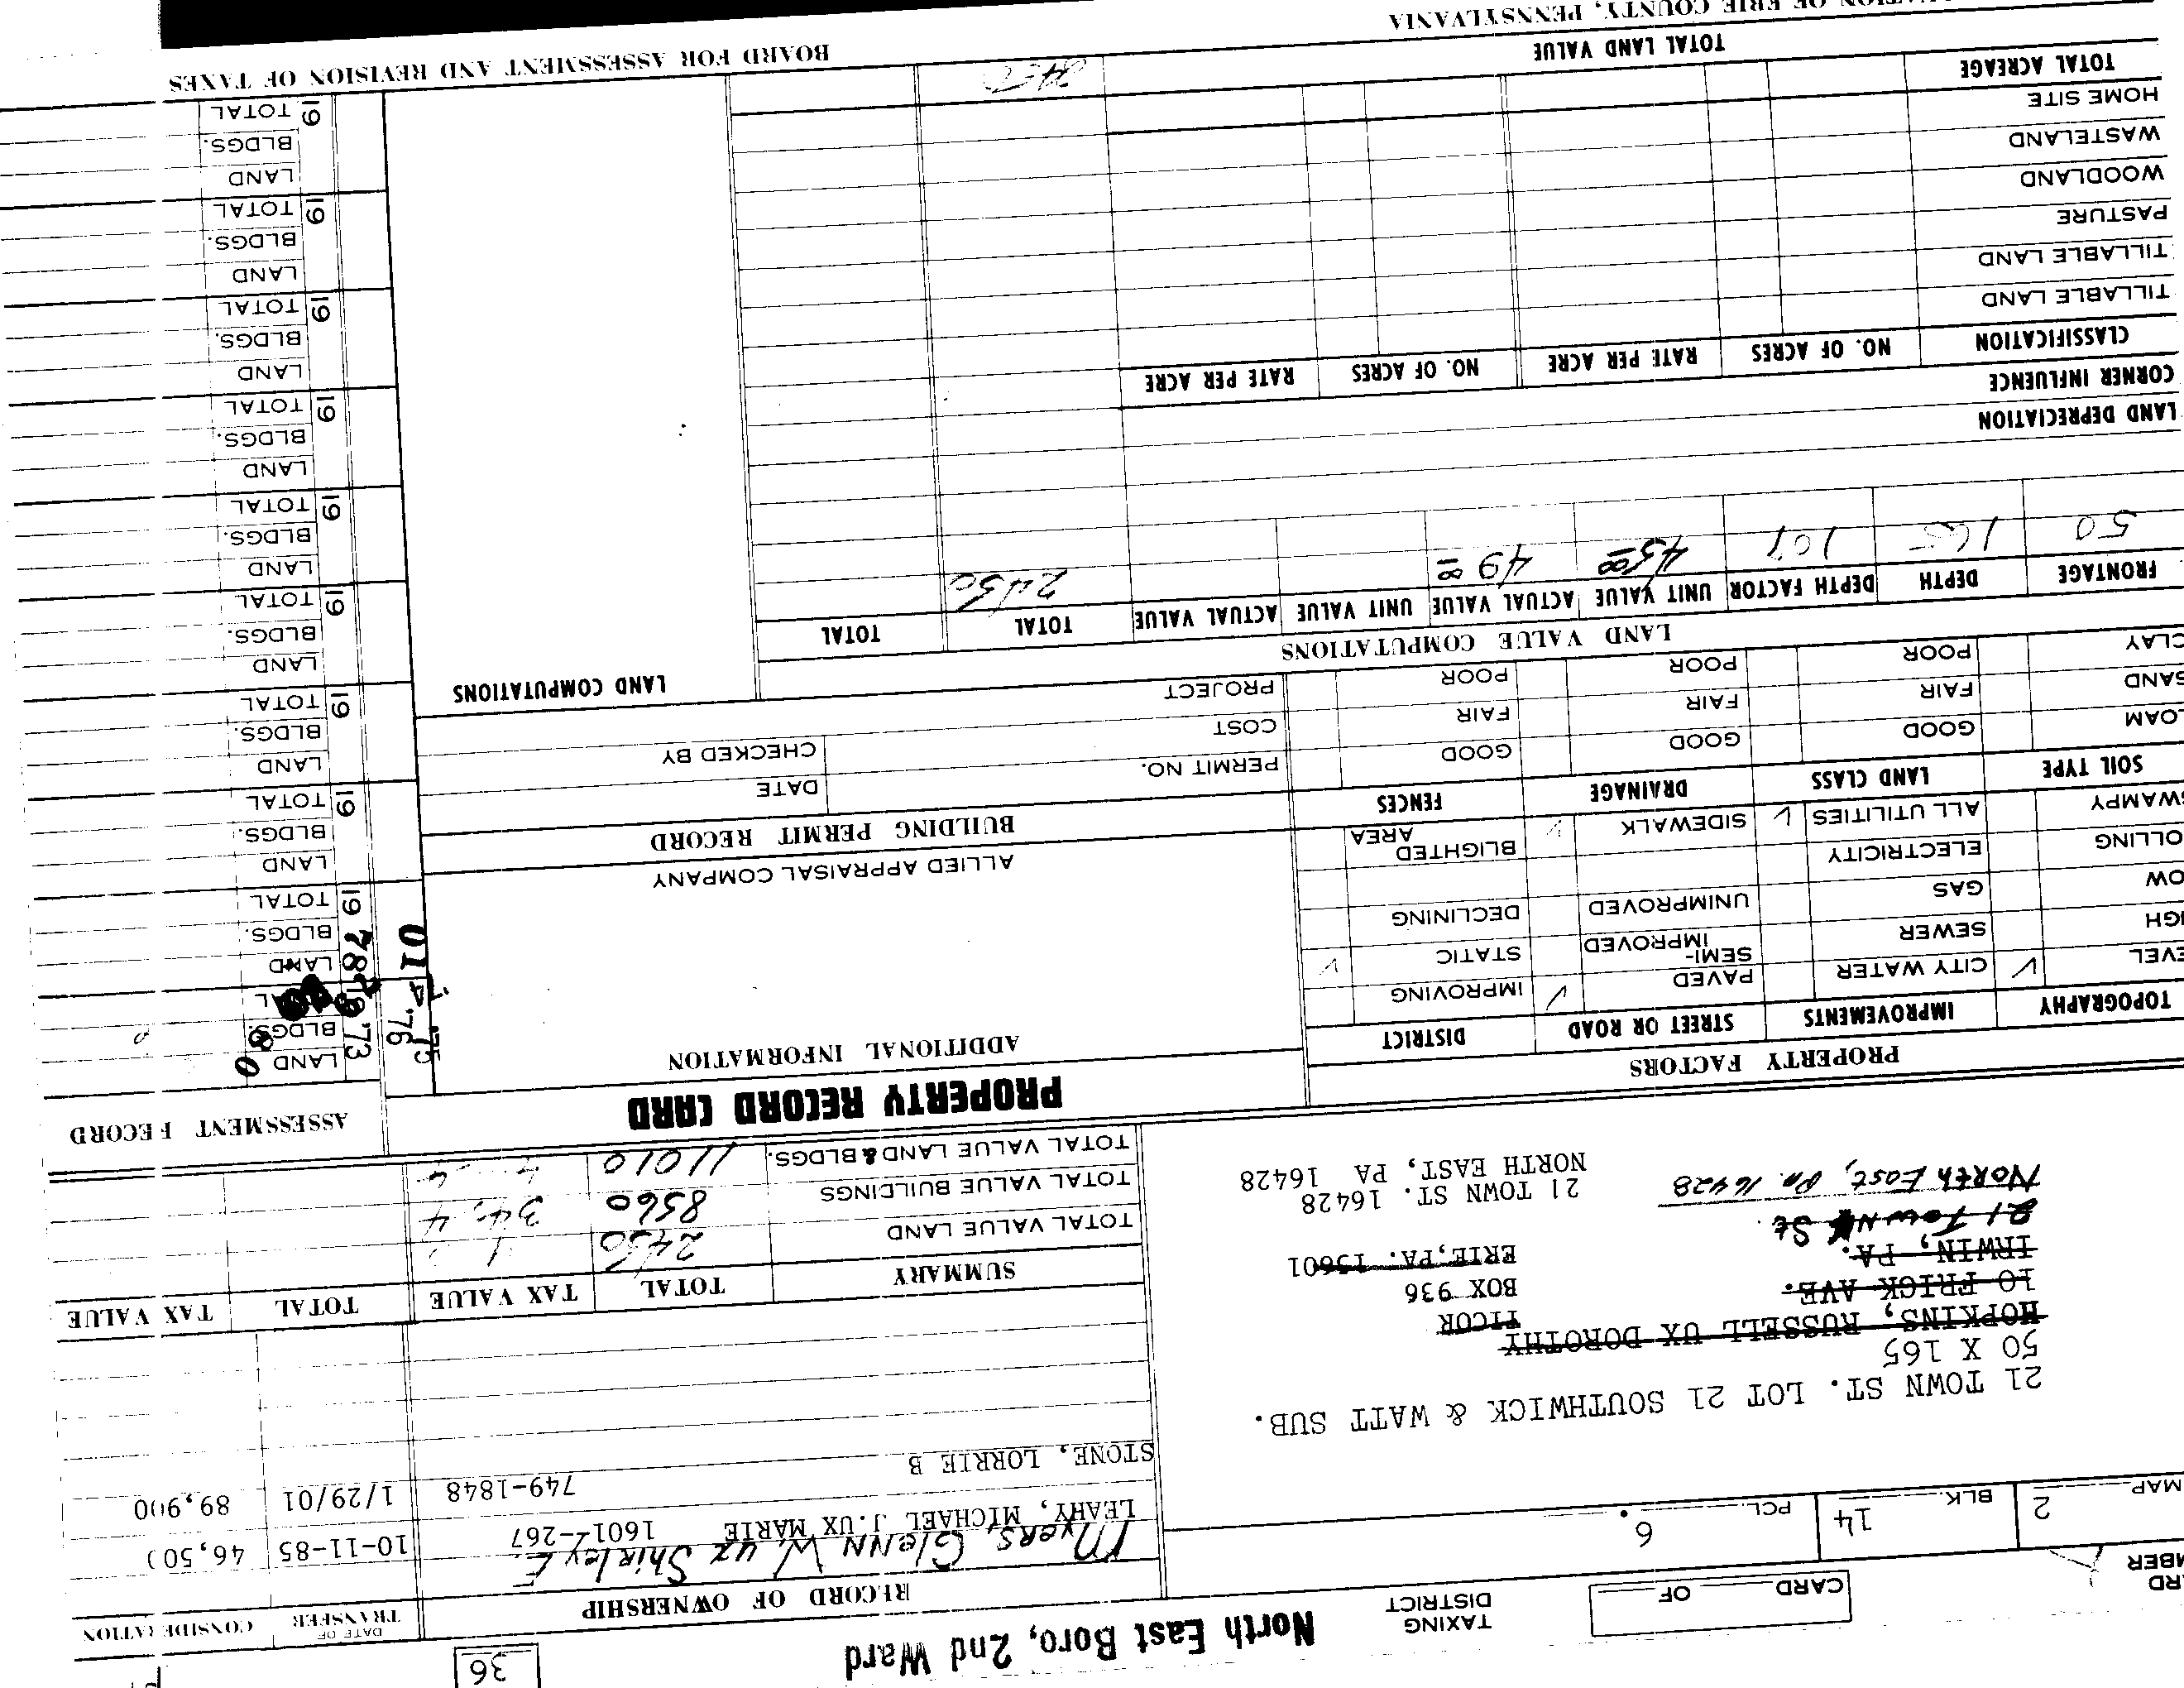 36
TAXING DISTRICT North East Boro, 2nd Ward
CARD OF
MAP 2 BLK. 14 PCL. 6
21 TOWN ST. LOT 21 SOUTHWICK & WATT SUB.
50 X 165
HOPKINS, RUSSELL UX DOROTHY
10 FRICK AVE.
IRWIN, PA.
21 Town St
North East, Pa. 16428
TICOR
BOX 936
ERIE, PA.
21 TOWN ST. 16428
NORTH EAST, PA 16428
RECORD OF OWNERSHIP DATE OF TRANSFER
Myers, Glenn W. ux Shirley E.
LEAHY, MICHAEL J. UX MARIE 1601-267 10-11-85
749-1848 1/29/01 89,900
STONE, LORRIE B
SUMMARY TOTAL TAX VALUE TOTAL TAX VALUE
TOTAL VALUE LAND 2450
TOTAL VALUE BUILDINGS 8560
TOTAL VALUE LAND & BLDGS. 11010
PROPERTY RECORD CARD
PROPERTY FACTORS
TOPOGRAPHY IMPROVEMENTS STREET OR ROAD DISTRICT
CITY WATER PAVED IMPROVING
SEWER SEMI-IMPROVED STATIC
GAS UNIMPROVED DECLINING
ELECTRICITY
ALL UTILITIES SIDEWALK BLIGHTED AREA
SOIL TYPE LAND CLASS DRAINAGE FENCES
GOOD GOOD GOOD
FAIR FAIR FAIR
CLAY POOR POOR POOR
ADDITIONAL INFORMATION
ALLIED APPRAISAL COMPANY
BUILDING PERMIT RECORD
PERMIT NO. DATE
COST CHECKED BY
PROJECT
LAND VALUE COMPUTATIONS
LAND COMPUTATIONS
FRONTAGE DEPTH DEPTH FACTOR UNIT VALUE ACTUAL VALUE UNIT VALUE ACTUAL VALUE TOTAL TOTAL
50 2450
LAND DEPRECIATION
CORNER INFLUENCE
CLASSIFICATION NO. OF ACRES RATE PER ACRE NO. OF ACRES RATE PER ACRE
TILLABLE LAND
TILLABLE LAND
PASTURE
WOODLAND
WASTELAND
HOME SITE
TOTAL ACREAGE
TOTAL LAND VALUE 2450
ERIE COUNTY, PENNSYLVANIA
BOARD FOR ASSESSMENT AND REVISION OF TAXES
ASSESSMENT RECORD
19 73 LAND
BLDGS.
'75
'76
01
19 78 LAND
BLDGS.
TOTAL
19 LAND
BLDGS.
TOTAL
19 LAND
BLDGS.
TOTAL
19 LAND
BLDGS.
TOTAL
19 LAND
BLDGS.
TOTAL
19 LAND
BLDGS.
TOTAL
19 LAND
BLDGS.
TOTAL
19 LAND
BLDGS.
TOTAL
19 LAND
BLDGS.
TOTAL